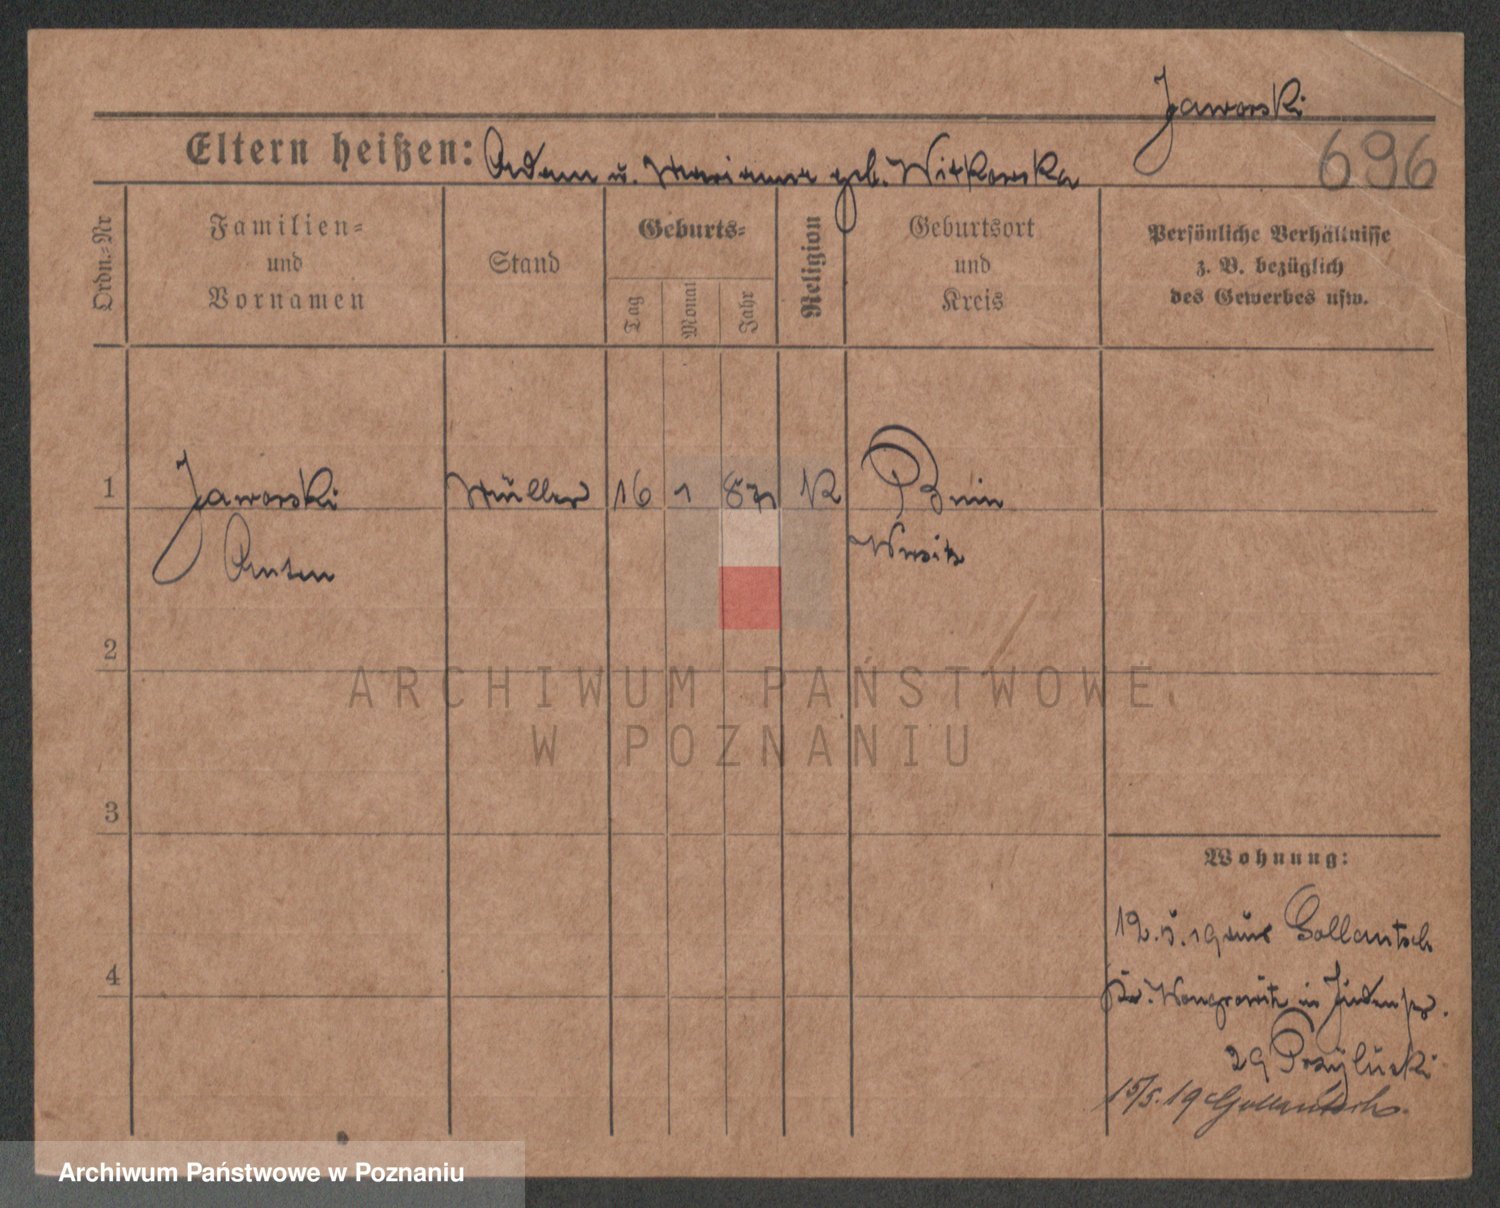 Jaworski
696
Eltern heißen: Adam u. Marianne geb. Witkowska
Ordn.-Nr
Familien-
und
Vornamen
Stand
Geburts-
Tag
Monat
Jahr
Religion
Geburtsort
und
Kreis
Persönliche Verhältnisse
z. B. bezüglich
des Gewerbes usw.
1
Jaworski
Anton
Müller
16
1
871
K
Bnin
Wirsitz
2
3
4
Wohnung:
12.5.19 aus Gollantsch
Kr. Wongrowitz in Judenstr.
29 Przylucki
15/5.19 Gollantsch.
ARCHIWUM PAŃSTWOWE
W POZNANIU
Archiwum Państwowe w Poznaniu